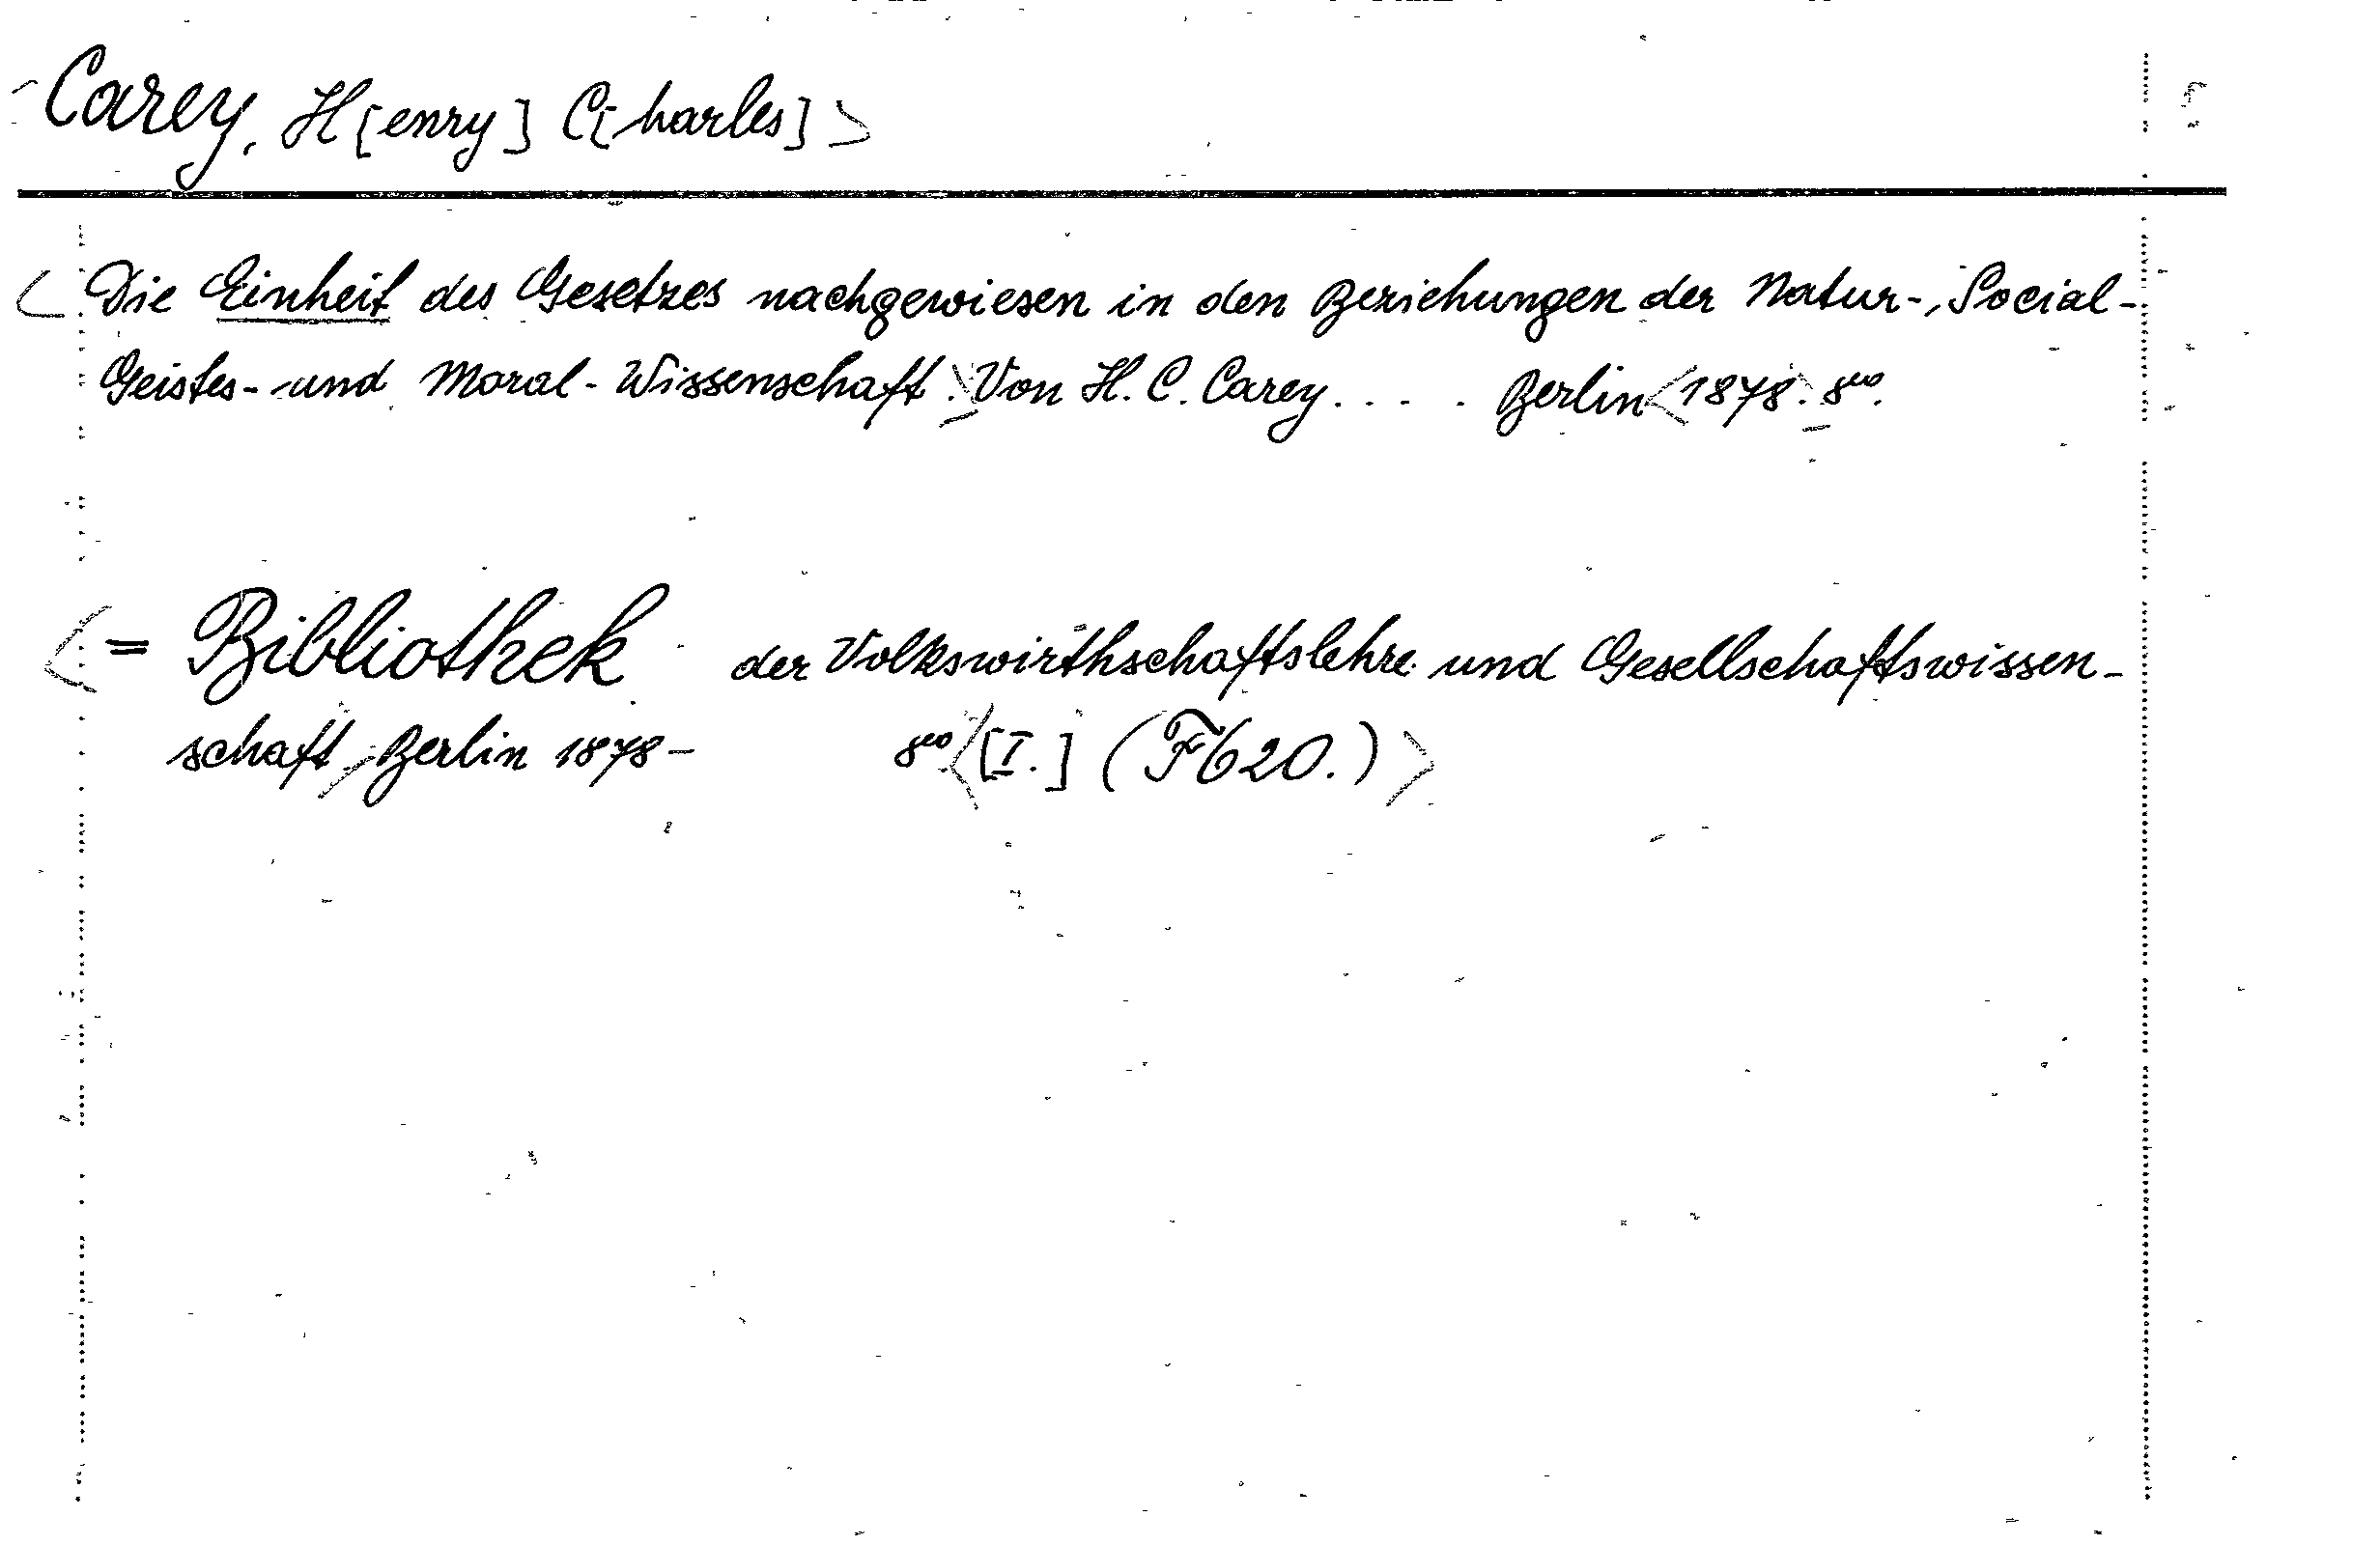 Carey, H[enry] C[harles]>
<Die Einheit des Gesetzes nachgewiesen in den Beziehungen der Natur-, Social-
Geistes- und Moral-Wissenschaft.> Von H. C. Carey.... Berlin <1878.> 8uo.
<= Bibliothek der Volkswirthschaftslehre und Gesellschaftswissen-
schaft, Berlin 1878- 8uo <[I.] (F620.)>